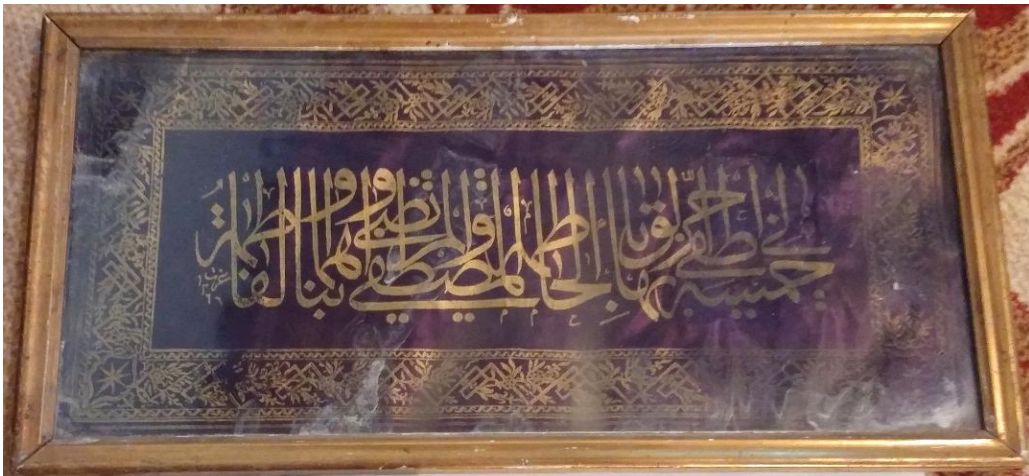 لي خمسة اطفي بها حرّ الوباء الحاطمة المصطفى والمرتضى وابناهما والفاطمة